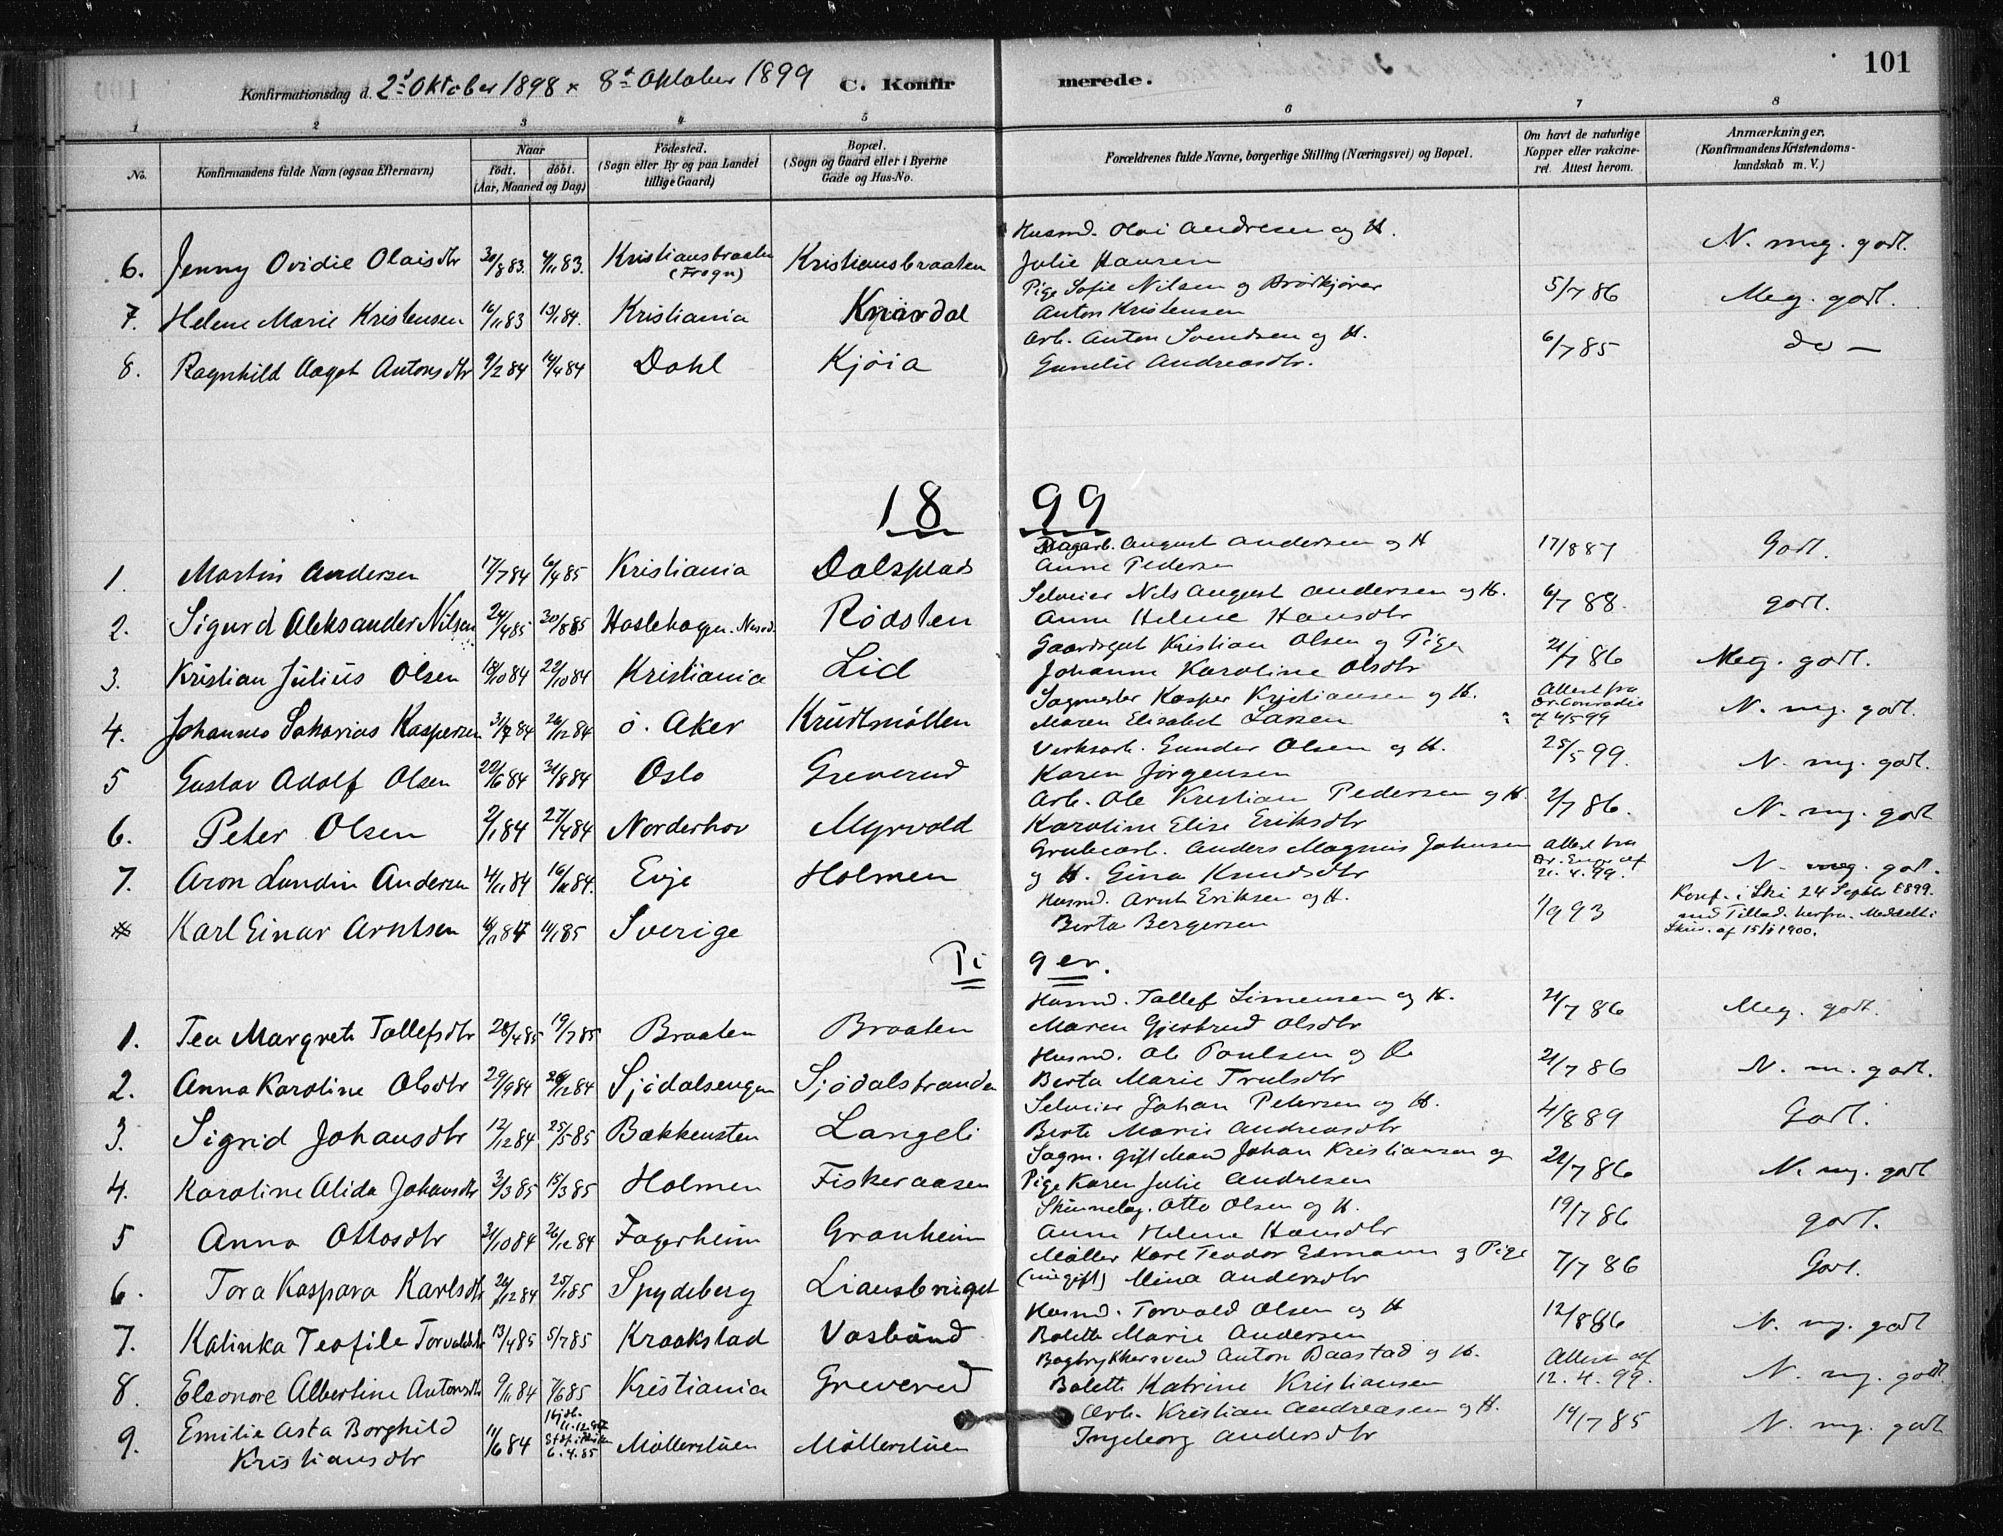 101
Konfirmationsdag d. 2d Oktober 1898 & 8de Oktober 1899 C. Konfirmerede.
1 2 3 4 5 6 7 8
No. Konfirmandens fulde Navn (ogsaa Efternavn) Naar født. døbt. (Aar, Maaned og Dag) Fødested. (Sogn eller By og paa Landet tillige Gaard) Bopæl. (Sogn og Gaard eller i Byerne Gade og Hus-No. Forældrenes fulde Navne, borgerlige Stilling (Næringsvei) og Bopæl. Om havt de naturlige Kopper eller vakcineret. Attest herom. Anmærkninger. (Konfirmandens Kristendomskundskab m. V.)
6. Jenny Ovidie Olaisdtr 30/8 83. 4/11 83. Kristiansbraaten (Frogn) Kristiansbraaten Husmd. Olai Andresen og H. Julie Hansen N. meg. godt.
7. Helene Marie Kristensen 16/11 83 13/1 84. Kristiania Knardal Pige Sofie Nilsen og Brødkjører Anton Kristensen 5/7 86 Meg. godt.
8. Ragnhild Aaget Antonsdtr 9/2 84 14/4 84 Dahl Kjøia Arb. Anton Svendsen og H. Gunelie Andreasdtr. 6/7 85 do —
1899
1. Martin Andersen 17/7 84 6/4 85 Kristiania Dalsplads Dagarb. August Andersen og H Anne Pedersen 17/8 87 Godt.
2. Sigurd Aleksander Nilsen 24/4 85 30/8 85 Haslehagen. Nesod. Rødsten Selveier Nils August Andersen og H. Anne Helene Hansdtr 6/7 88. godt.
3. Kristian Julius Olsen 18/10 84 22/10 84 Kristiania Lid Gaardsgut Kristian Olsen og Pige Johanne Karoline Olsdtr 21/7 86 Meg. godt.
4. Johannes Sakarias Kaspersen 31/7 84 26/12 84 Ø. Aker Krudtmøllen Sagmester Kasper Kristiansen og H. Maren Elisabet Larsen Attest fra Dr. Conradie af 4/5 99 N. mg. godt.
5 Gustav Adolf Olsen 22/6 84 31/8 84 Oslo Greverud Verksarb. Gunder Olsen og H. Karen Jørgensen 25/5 99. N. mg. godt.
6. Peter Olsen 2/1 84 27/4 84 Norderhov Myrvold Arb. Ole Kristian Pedersen og H. Karoline Elise Eriksdtr 2/7 86. N. mg. godt
7. Aron Lundin Andersen 4/11 84 16/11 84. Evje Holmen Grubearb. Anders Magnus Johnsen og H. Gina Knudsdtr Attest fra Dr. Enge af 21. 4. 99. N. meg. godt.
* Karl Einar Arntsen 16/11 84 11/1 85 Sverige Husmd. Arnt Eriksen og H. Berta Bergersen 1/9 93 Konf. i Ski 24 Septbr 1899. med Tillad. herfra. Meddelt i Skriv. af 15/1 1900.
Piger.
1. Tea Margrete Tollefsdtr 28/4 85 19/7 85 Braaten Braaten Husmd. Tollef Simensen og H. Maren Gjertrud Olsdtr 21/7 86 Meg. godt.
2. Anna Karoline Olsdtr 29/9 84 26/12 84 Sjødalsengen Sjødalstranden Husmd. Ole Poulsen og H Berta Marie Trulsdtr 21/7 86 N. m. godt.
3. Sigrid Johansdtr 12/12 84 25/5 85 Bækkensten Langeli Selveier Johan Petersen og H. Berte Marie Andreasdtr 4/8 89 Godt.
4. Karoline Alida Johansdtr 3/3 85 15/3 85 Holmen Fiskeraasen Sagm. gift Mand Johan Kristiansen og Pige Karen Julie Andresen 22/7 86 N. mg. godt
5 Anna Ottosdtr 31/10 84 26/12 84 Fagerheim Granheim Skinnelæg. Otto Olsen og H. Anne Helene Hansdtr 19/7 86 godt.
6. Tora Kaspara Karlsdtr 24/12 84 25/1 85 Spydeberg Liansbruget Møller Karl Teodor Edmann og Pige (ugift) Mina Andersdtr 7/7 86 Godt.
7. Kalinka Teofile Torvaldsdtr 13/4 85 5/7 85 Kraakstad Vasbund Husmd. Torvald Olsen og H Bolette Marie Andersen 12/8 86 N. mg. godt
8. Eleonore Albertine Antonsdtr 9/11 84 7/6 85 Kristiania Greverud Bogtrykkersvend Anton Baastad og H. Bolette Katrine Kristiansen Attest af 12. 4. 99. N. mg. godt.
9. Emilie Asta Borghild Kristiansdtr 11/6 84 6. 4. 85 Møllerstuen Møllerstuen Arb. Kristian Andreasen og H. Ingeborg Andersdtr 14/7 85 N. mg. godt